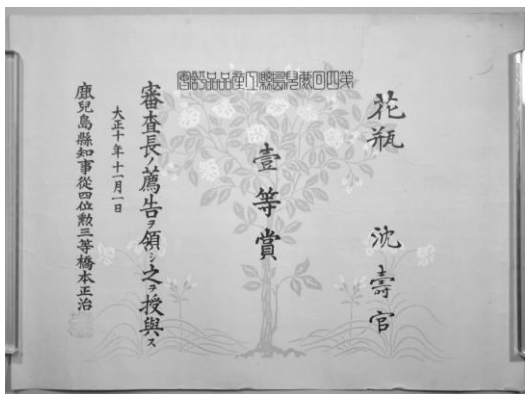 第四回鹿兒島縣工產品品評會
花瓶
沈壽官
壹等賞
審査長ノ薦告ヲ領シ之ヲ授與ス
大正十年十一月一日
鹿兒島縣知事從四位勲三等橋本正治